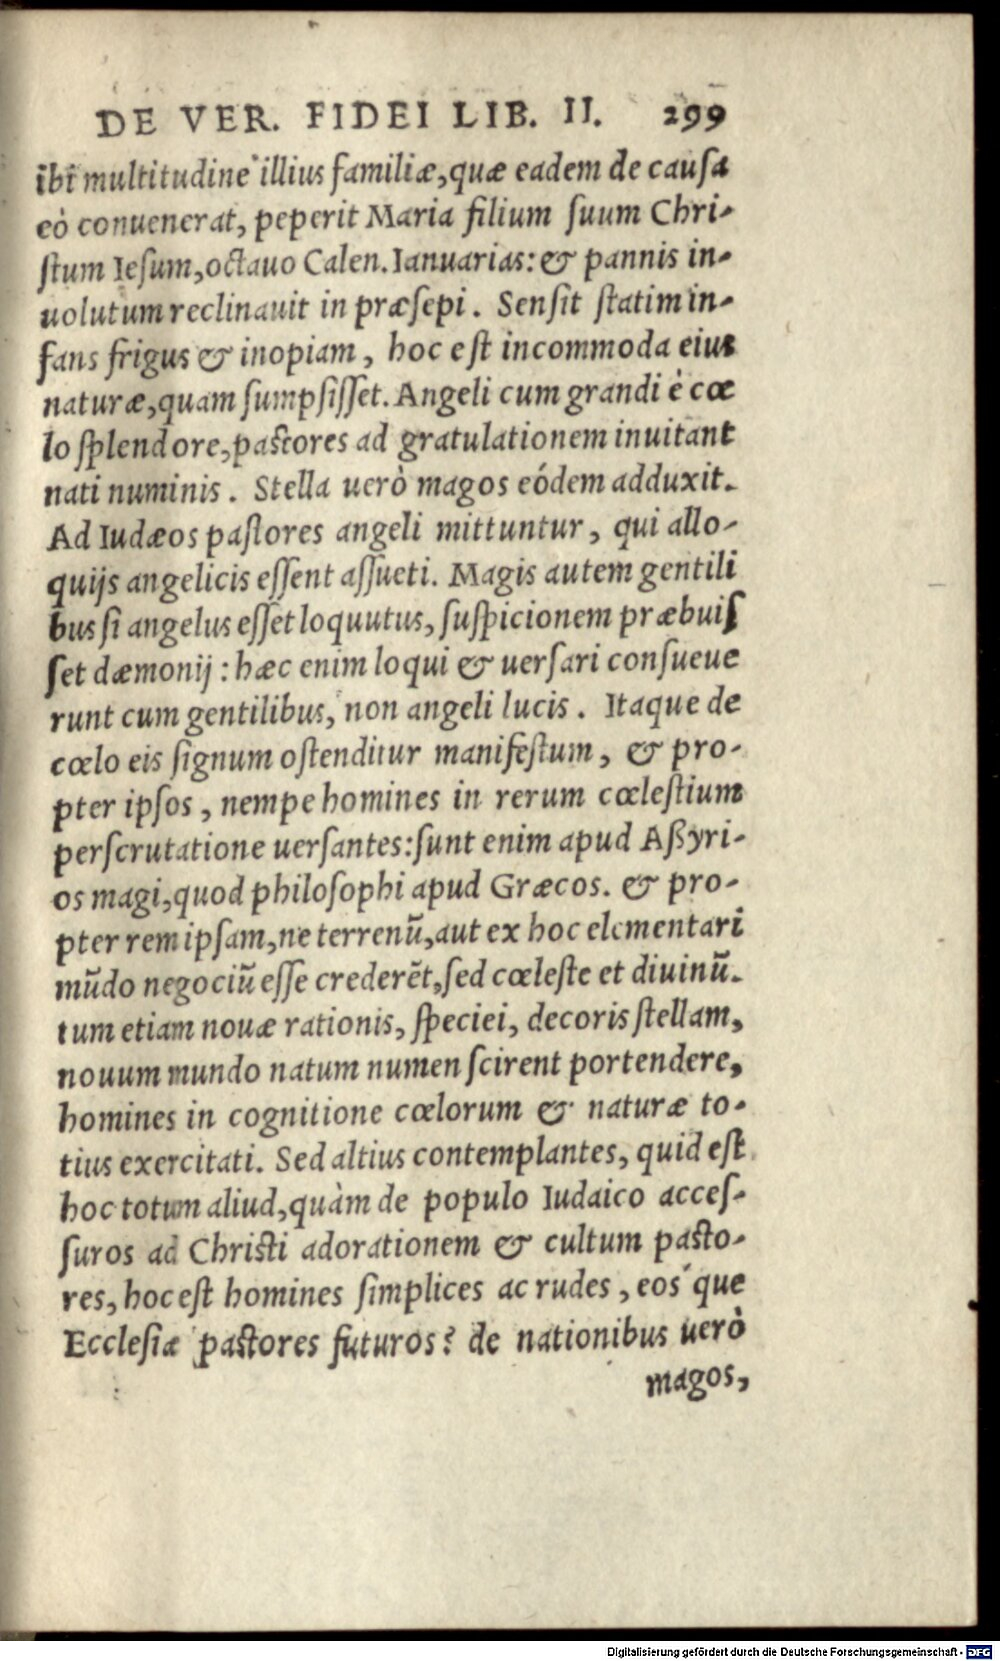 DE VER. FIDEI LIB. II. 299
ibi multitudine illius familiæ, quæ eadem de causa
eò conuenerat, peperit Maria filium suum Chri-
stum Iesum, octauo Calen. Ianuarias: & pannis in-
uolutum reclinauit in præsepi. Sensit statim in-
fans frigus & inopiam, hoc est incommoda eius
naturæ, quam sumpsisset. Angeli cum grandi è cœ
lo splendore, pastores ad gratulationem inuitant
nati numinis. Stella uerò magos eódem adduxit.
Ad Iudæos pastores angeli mittuntur, qui allo-
quijs angelicis essent assueti. Magis autem gentili
bus si angelus esset loquutus, suspicionem præbuis
set dæmonij: hæc enim loqui & uersari consueue
runt cum gentilibus, non angeli lucis. Itaque de
cœlo eis signum ostenditur manifestum, & pro-
pter ipsos, nempe homines in rerum cœlestium
perscrutatione uersantes: sunt enim apud Aßyri-
os magi, quod philosophi apud Græcos. & pro-
pter rem ipsam, ne terrenũ, aut ex hoc elementari
mũdo negociũ esse crederẽt, sed cœleste et diuinũ.
tum etiam nouæ rationis, speciei, decoris stellam,
nouum mundo natum numen scirent portendere,
homines in cognitione cœlorum & naturæ to-
tius exercitati. Sed altius contemplantes, quid est
hoc totum aliud, quàm de populo Iudaico acces-
suros ad Christi adorationem & cultum pasto-
res, hoc est homines simplices ac rudes, eos´que
Ecclesiæ pastores futuros? de nationibus uerò
magos,
Digitalisierung gefördert durch die Deutsche Forschungsgemeinschaft - DFG